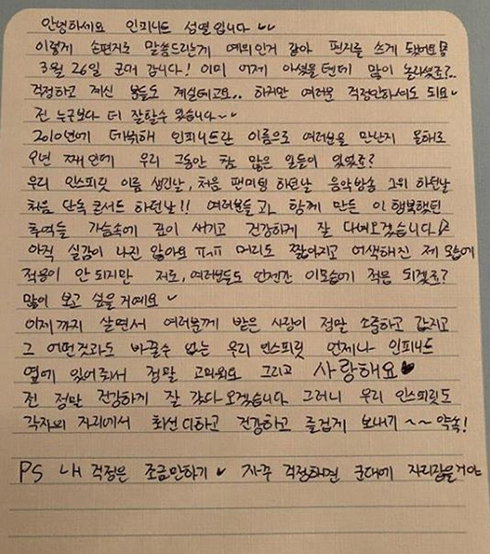 안녕하세요 인피니트 성열입니다 ᵕᵕ
이렇게 손편지로 말씀드리는게 예의인거 같아 편지를 쓰게 됐어요
3월 26일 군대 갑니다! 이미 어제 아셨을텐데 많이 놀라셨죠?..
걱정하고 계신 분들도 계실테고요.. 하지만 여러분 걱정안하셔도 되요
전 누구보다 더 잘할수 있습니다~
2010년에 데뷔해 인피니트란 이름으로 여러분을 만난지 올해로
9년 째인데 우리 그동안 참 많은 일들이 있었죠?
우리 인스피릿 이름 생긴날, 처음 팬미팅 하던날 음악방송 1위 하던날
처음 단독 콘서트 하던날!! 여러분들과 함께 만든 이 행복했던
추억들 가슴속에 깊이 새기고 건강하게 잘 다녀오겠습니다
아직 실감이 나진 않아요 ㅠㅠ 머리도 짧아지고 어색해진 제 모습에
적응이 안 되지만 저도, 여러분들도 언젠간 이모습에 적응 되겠죠?
많이 보고 싶을거예요
이제까지 살면서 여러분께 받은 사랑이 정말 소중하고 값지고
그 어떤것과도 바꿀수 없는 우리 인스피릿 언제나 인피니트
옆에 있어줘서 정말 고마워요 그리고 사랑해요♥
전 정말 건강하게 잘 갔다 오겠습니다 그러니 우리 인스피릿도
각자의 자리에서 최선 다하고 건강하고 즐겁게 보내기~~ 약속!
PS 내 걱정은 조금만하기 자꾸 걱정하면 군대에 자리잡을거야